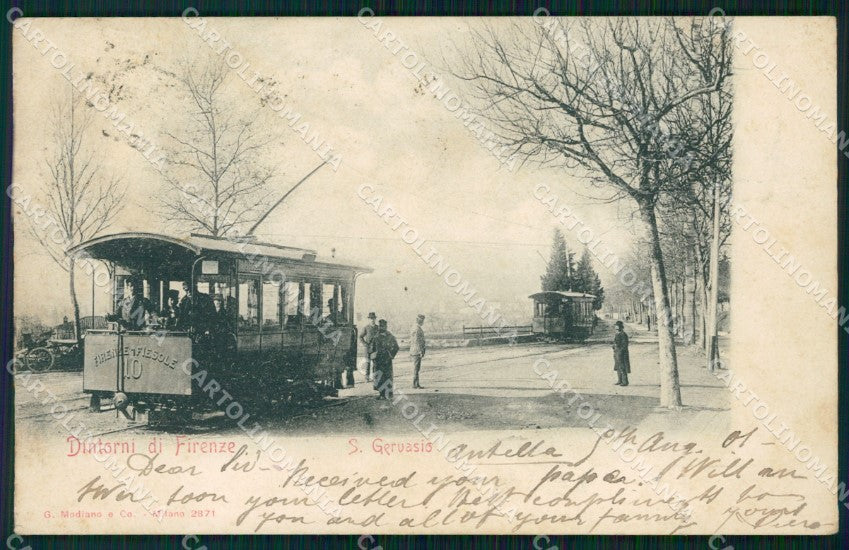 FIRENZE-FIESOLE
10
Dintorni di Firenze
S. Gervasio
Antella 5th Aug. 01-
Dear Sir- Received your paper. Will an
swer soon your letter Best compliments to
you and all of your family yours
G. Modiano e Co. - Milano 2871
CARTOLINOMANIA